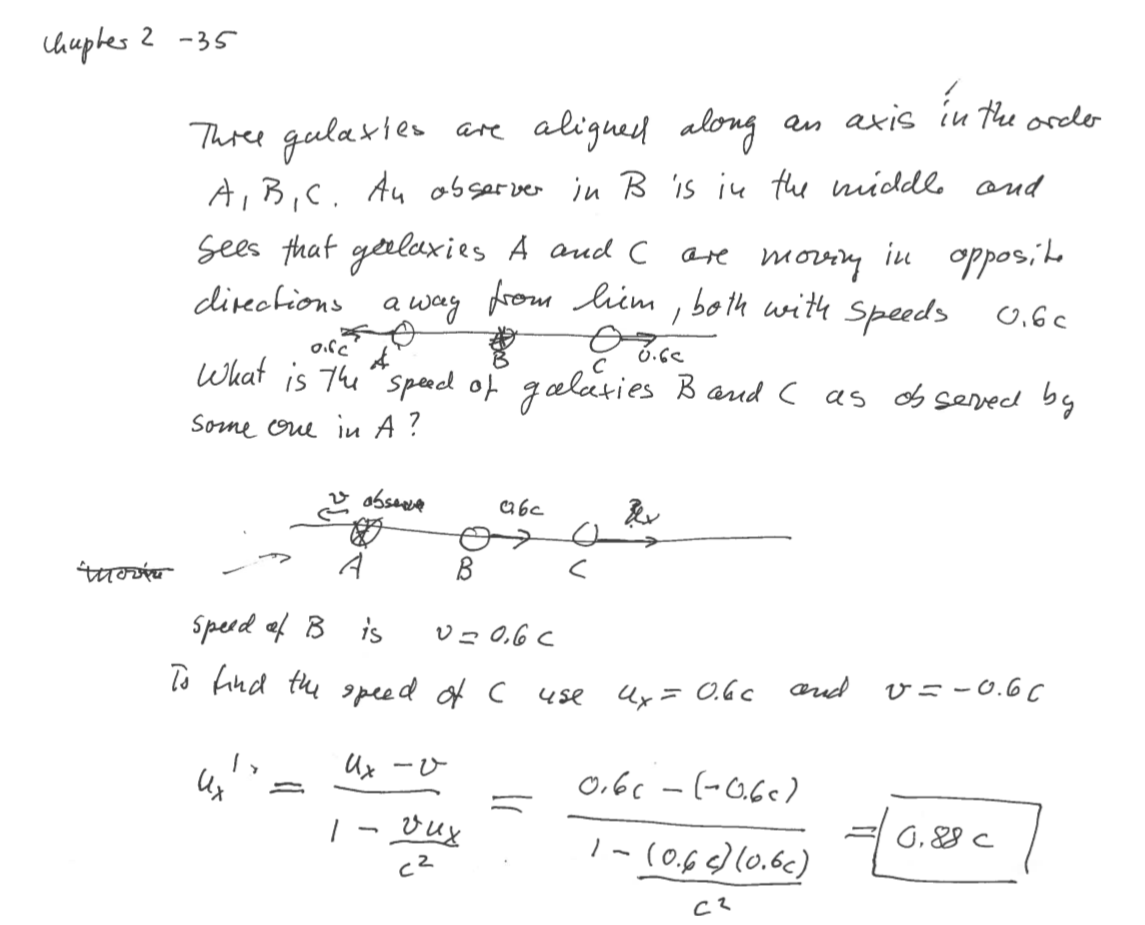 Chapter 2 -35
Three galaxies are aligned along an axis in the order
A, B, C. An observer in B is in the middle and
sees that galaxies A and C are moving in opposite
directions away from him, both with speeds 0.6c
0.6c A B C 0.6c
What is the speed of galaxies B and C as observed by
some one in A?
v observer 0.6c
A B C
speed of B is v = 0.6 c
To find the speed of C use ux = 0.6c and v = -0.6c
ux' = ux - v / 1 - vux/c² = 0.6c - (-0.6c) / 1 - (0.6c)(0.6c)/c² = 0.88 c